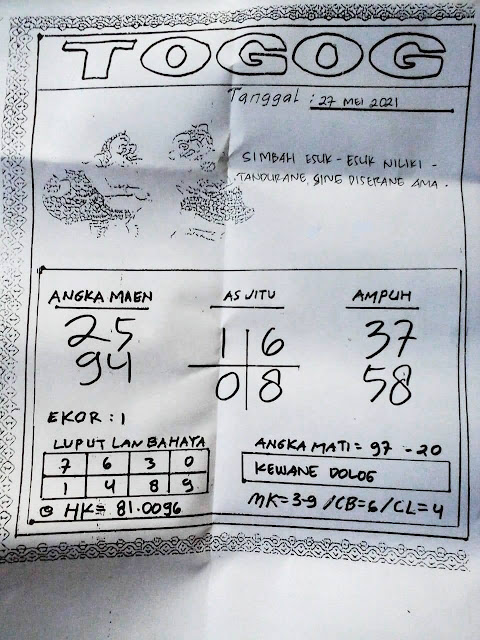 TOGOG
Tanggal : 27 MEI 2021
SIMBAH ESUK - ESUK NILIKI -
TANDURANE SING DISERANG AMA .
ANGKA MAEN
25
94
AS JITU
1 6
0 8
AMPUH
37
58
EKOR : 1
LUPUT LAN BAHAYA
7 6 3 0
1 4 8 9
HK = 81.0096
ANGKA MATI = 97 - 20
KEWANE DOLOG
MK = 3-9 / CB = 6 / CL = 4